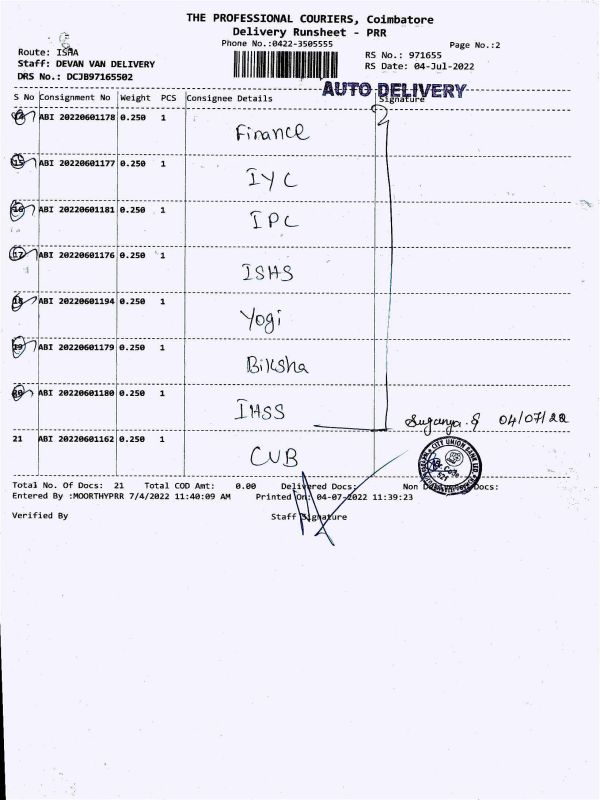 THE PROFESSIONAL COURIERS, Coimbatore
Delivery Runsheet - PRR
Phone No.:0422-3505555
Page No.:2
Route: ISHA
RS No.: 971655
Staff: DEVAN VAN DELIVERY
RS Date: 04-Jul-2022
DRS No.: DCJB97165502
AUTO DELIVERY
S No Consignment No Weight PCS Consignee Details Signature
14 ABI 20220601178 0.250 1 Finance
15 ABI 20220601177 0.250 1 IYC
16 ABI 20220601181 0.250 1 IPC
17 ABI 20220601176 0.250 1 ISHS
18 ABI 20220601194 0.250 1 Yogi
19 ABI 20220601179 0.250 1 Biksha
20 ABI 20220601180 0.250 1 IHSS
Suganya.S 04/07/22
21 ABI 20220601162 0.250 1 CUB
CITY UNION BANK
Total No. Of Docs: 21 Total COD Amt: 0.00 Delivered Docs: Non Docs:
Entered By :MOORTHYPRR 7/4/2022 11:40:09 AM Printed On: 04-07-2022 11:39:23
Verified By Staff Signature